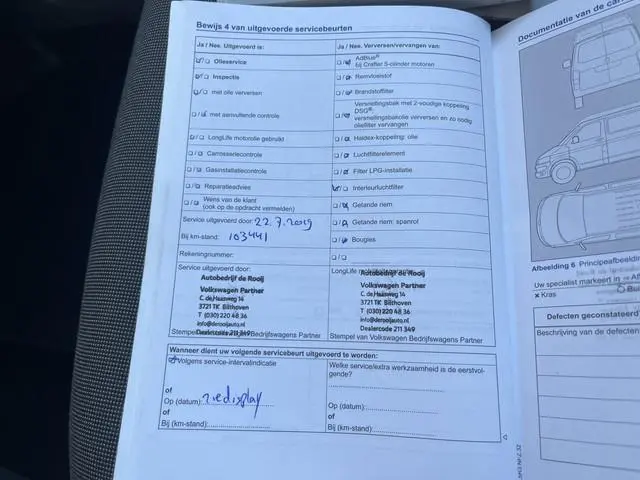 Bewijs 4 van uitgevoerde servicebeurten
Ja / Nee. Uitgevoerd is:
Olieservice
Inspectie
met olie verversen
met aanvullende controle
LongLife motorolie gebruikt
Carrosseriecontrole
Gasinstallatiecontrole
Reparatieadvies
Wens van de klant
(ook op de opdracht vermelden)
Service uitgevoerd door: 22.7.2019
Bij km-stand: 103441
Rekeningnummer:
Service uitgevoerd door:
Autobedrijf de Rooij
Volkswagen Partner
C. de Haasweg 14
3721 TK Bilthoven
T (030) 220 48 36
info@derooijauto.nl
Dealercode 211 349
Stempel van Volkswagen Bedrijfswagens Partner
Ja / Nee. Verversen/vervangen van:
AdBlue®
bij Crafter 5-cilinder motoren
Remvloeistof
Brandstoffilter
Versnellingsbak met 2-voudige koppeling
DSG®:
versnellingsbakolie verversen en zo nodig
oliefilter vervangen
Haldex-koppeling: olie
Luchtfilterelement
Filter LPG-installatie
Interieurluchtfilter
Getande riem
Getande riem: spanrol
Bougies
LongLife
Autobedrijf de Rooij
Volkswagen Partner
C. de Haasweg 14
3721 TK Bilthoven
T (030) 220 48 36
info@derooijauto.nl
Dealercode 211 349
Stempel van Volkswagen Bedrijfswagens Partner
Wanneer dient uw volgende servicebeurt uitgevoerd te worden:
Volgens service-intervalindicatie
of
Op (datum): zie display
of
Bij (km-stand):
Welke service/extra werkzaamheid is de eerstvol-
gende?
Op (datum):
of
Bij (km-stand):
Documentatie van de
Afbeelding 6 Principeafbeelding
Uw specialist markeert in
× Kras
Defecten geconstateerd
Beschrijving van de defecten